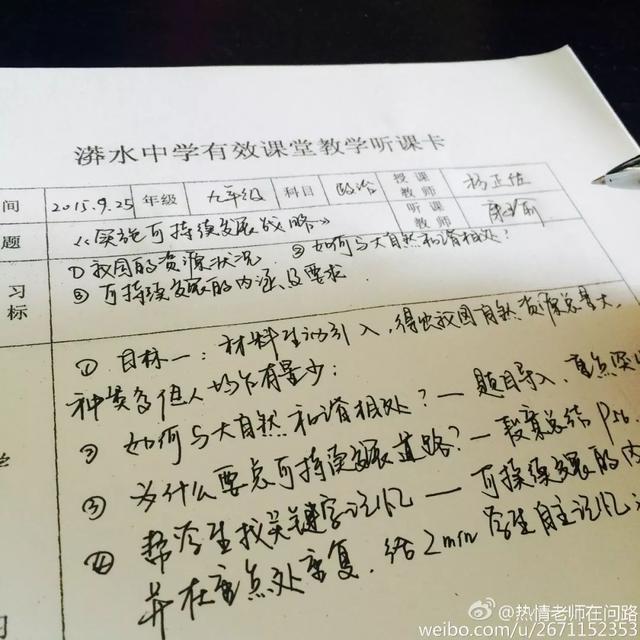 漭水中学有效课堂教学听课卡
间 2015.9.25 年级 九年级 科目 政治 授课教师 杨正佳
题 《实施可持续发展战略》 听课教师
习标 ①我国的资源状况 ②如何与大自然和谐相处?
③可持续发展的内涵及要求
① 目标一:材料生动引入,得出我国自然资源总量大,
种类多但人均占有量少;
② 如何与大自然和谐相处?—题目导入,重点深
③ 为什么要走可持续发展道路?—教案总结 P
④ 帮学生找关键字记忆—可持续发展的内
并在重点处重复,给2min学生自主记忆
学
习
@热情老师在问路
weibo.com/u/2671152353